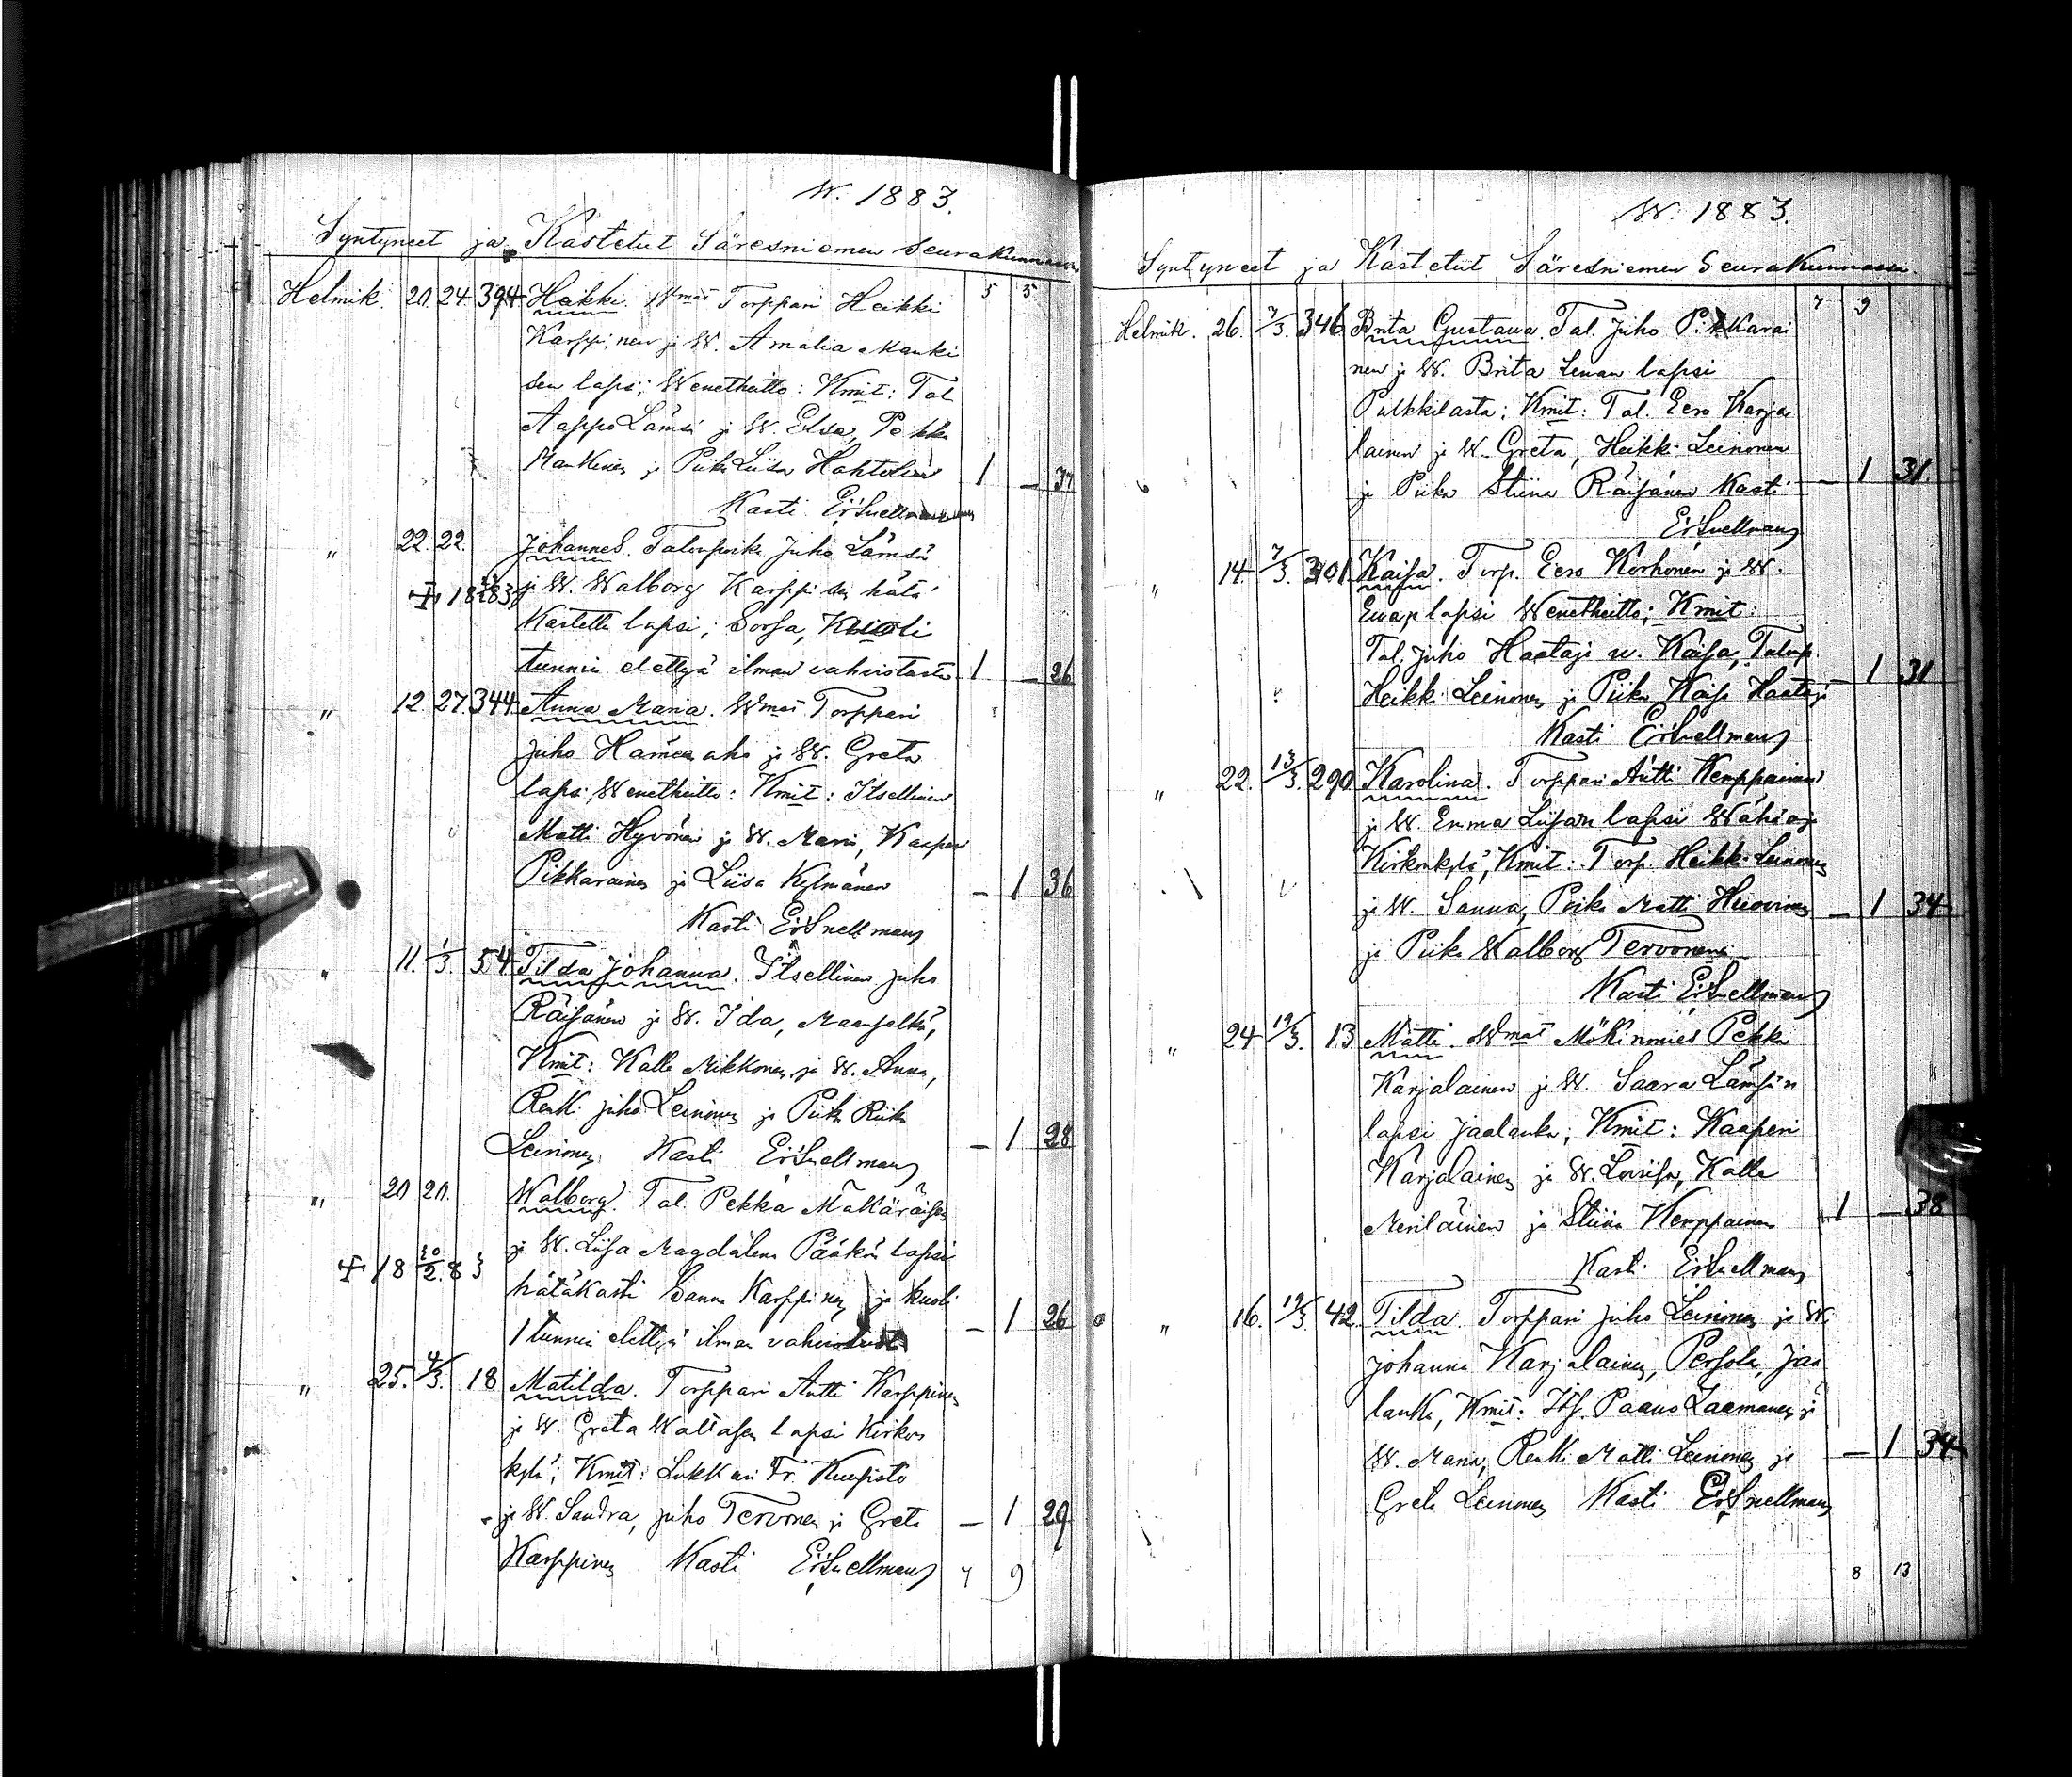 W. 1883.
Syntyneet ja Kastetut Säresniemen Seurakunnassa
5 5
Helmik. 20. 24. 394 Heikki. Wmat Torppari Heikki
Karppinen ja W. Amalia Manki
sen lapsi; Wenetheitto: Kmit: Tal.
Aappo Lämsä ja W. Elsa, Pekka
Mankinen ja Piika Liisa Hahtelin 1 — 37
Kasti ErSnellman
„ 22. 22. Johannes. Talonpoika Juho Lämsä
✝ 18 22/2 83 ja W. Walborg Karppisen hätä
Kastettu lapsi; Sorsa, Kuoli
tunnin elettyä ilman vahvistusta 1 — 26
„ 12. 27. 344 Anna Maria. Wmat Torppari
Juho Hämeenaho ja W. Greta
lapsi Wenetheitto: Kmit: Itsellinen
Matti Hyvönen ja W. Maria, Kasperi
Pikkarainen ja Liisa Kylmänen — 1 36
Kasti ErSnellman
„ 11. 1/3. 54 Tilda Johanna. Itsellinen Juho
Räisänen ja W. Ida, Maanselkä,
Kmit: Kalle Mikkonen ja W. Anna,
Renki Juho Leinonen ja Piika Riika
Leinonen Kasti ErSnellman — 1 28
„ 20 20. Walborg. Tal. Pekka Mäkäräisen
ja W. Liisa Magdalena Pääkön lapsi
✝ 18 20/2. 83 hätäkasti Sanna Karppinen ja kuoli
1 tunnin elettyä ilman vahvistusta — 1 26
„ 25. 4/3. 18 Matilda. Torppari Antti Karppinen
ja W. Greta Wattasen lapsi Kirkon
kylä; Kmit: Lukkari Fr. Kuusisto
ja W. Sandra, Juho Tervonen ja Greta — 1 29
Karppinen Kasti ErSnellman 7 9
W. 1883.
Syntyneet ja Kastetut Säresniemen Seurakunnassa
7 9
Helmik. 26. 7/3. 346 Brita Gustava. Tal. Juho Pikkarai
nen ja W. Brita Leenan lapsi
Pulkkilasta: Kmit: Tal. Eero Karja
lainen ja W. Greta, Heikki Leinonen
ja Piika Stiina Räisänen Kasti — 1 31.
ErSnellman
„ 14. 7/3. 301 Kaisa. Torp. Eero Korhonen ja W.
Evan lapsi Wenetheitto; Kmit:
Tal. Juho Haataja w. Kaisa, Talonp.
Heikki Leinonen ja Piika Kaisa Haataja — 1 31
Kasti ErSnellman
„ 22. 13/3. 290 Karolina. Torppari Antti Kemppainen
ja W. Emma Liisan lapsi
Kirkonkylä, Kmit: Torp. Heikki Leinonen
ja W. Sanna, Poika Matti Huovinen — 1 34
ja Piika Walborg Tervonen
Kasti ErSnellman
„ 24 19/3. 13 Matti. Wmat Mökinmies Pekka
Karjalainen ja W. Saara Lämsän
lapsi Jaalanka; Kmit: Kaaperi
Karjalainen ja W. Lovisa, Kalle
Meriläinen ja Stiina Kemppainen 1 — 38
Kasti ErSnellman
„ 16. 19/3. 42. Tilda. Torppari Juho Leinonen ja W.
Johanna Karjalainen, Persola, Jaa
lanka, Kmit: Its. Paavo Laamanen ja
W. Maria, Renki Matti Leinonen ja — 1 34
Greta Leinonen Kasti ErSnellman
8 13